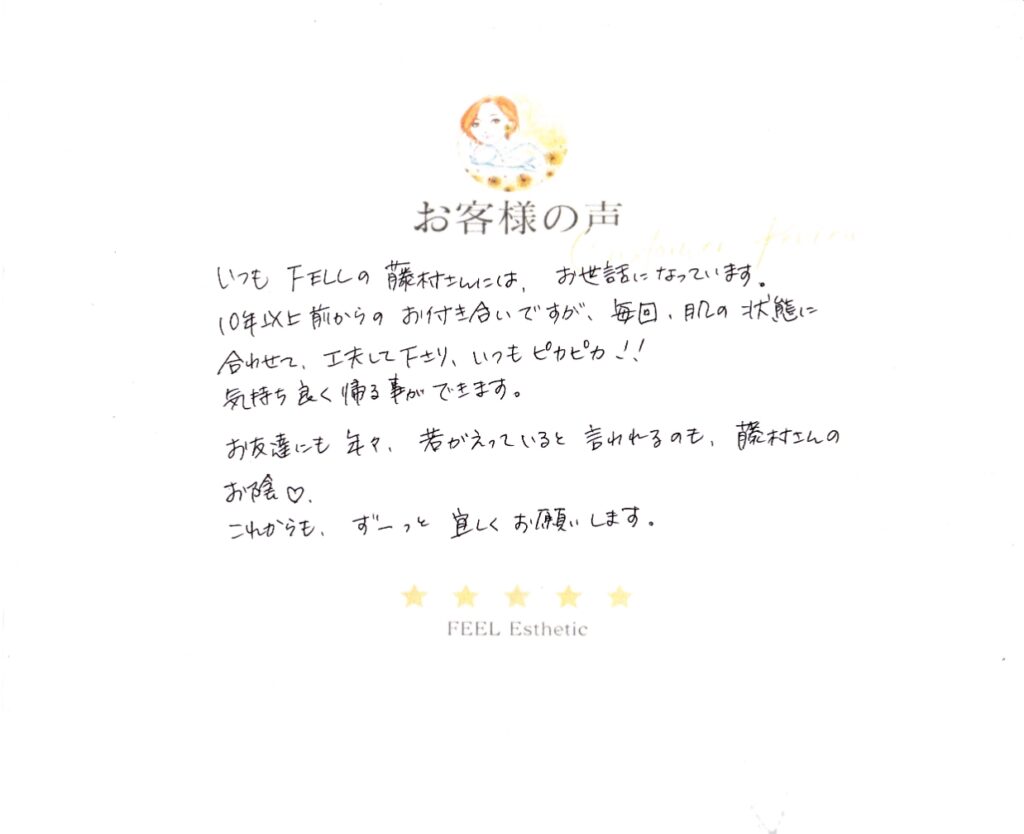 お客様の声
Customer Review
いつも FELLの 藤村さんには、お世話になっています。
10年以上前からの お付き合いですが、毎回、肌の 状態に
合わせて、工夫して下さり、いつも ピカピカ!!
気持ち良く帰る事ができます。
お友達にも 年々、若がえっていると 言われるのも、藤村さんの
お陰♡、
これからも、ずーっと 宜しく お願いします。
★ ★ ★ ★ ★
FEEL Esthetic